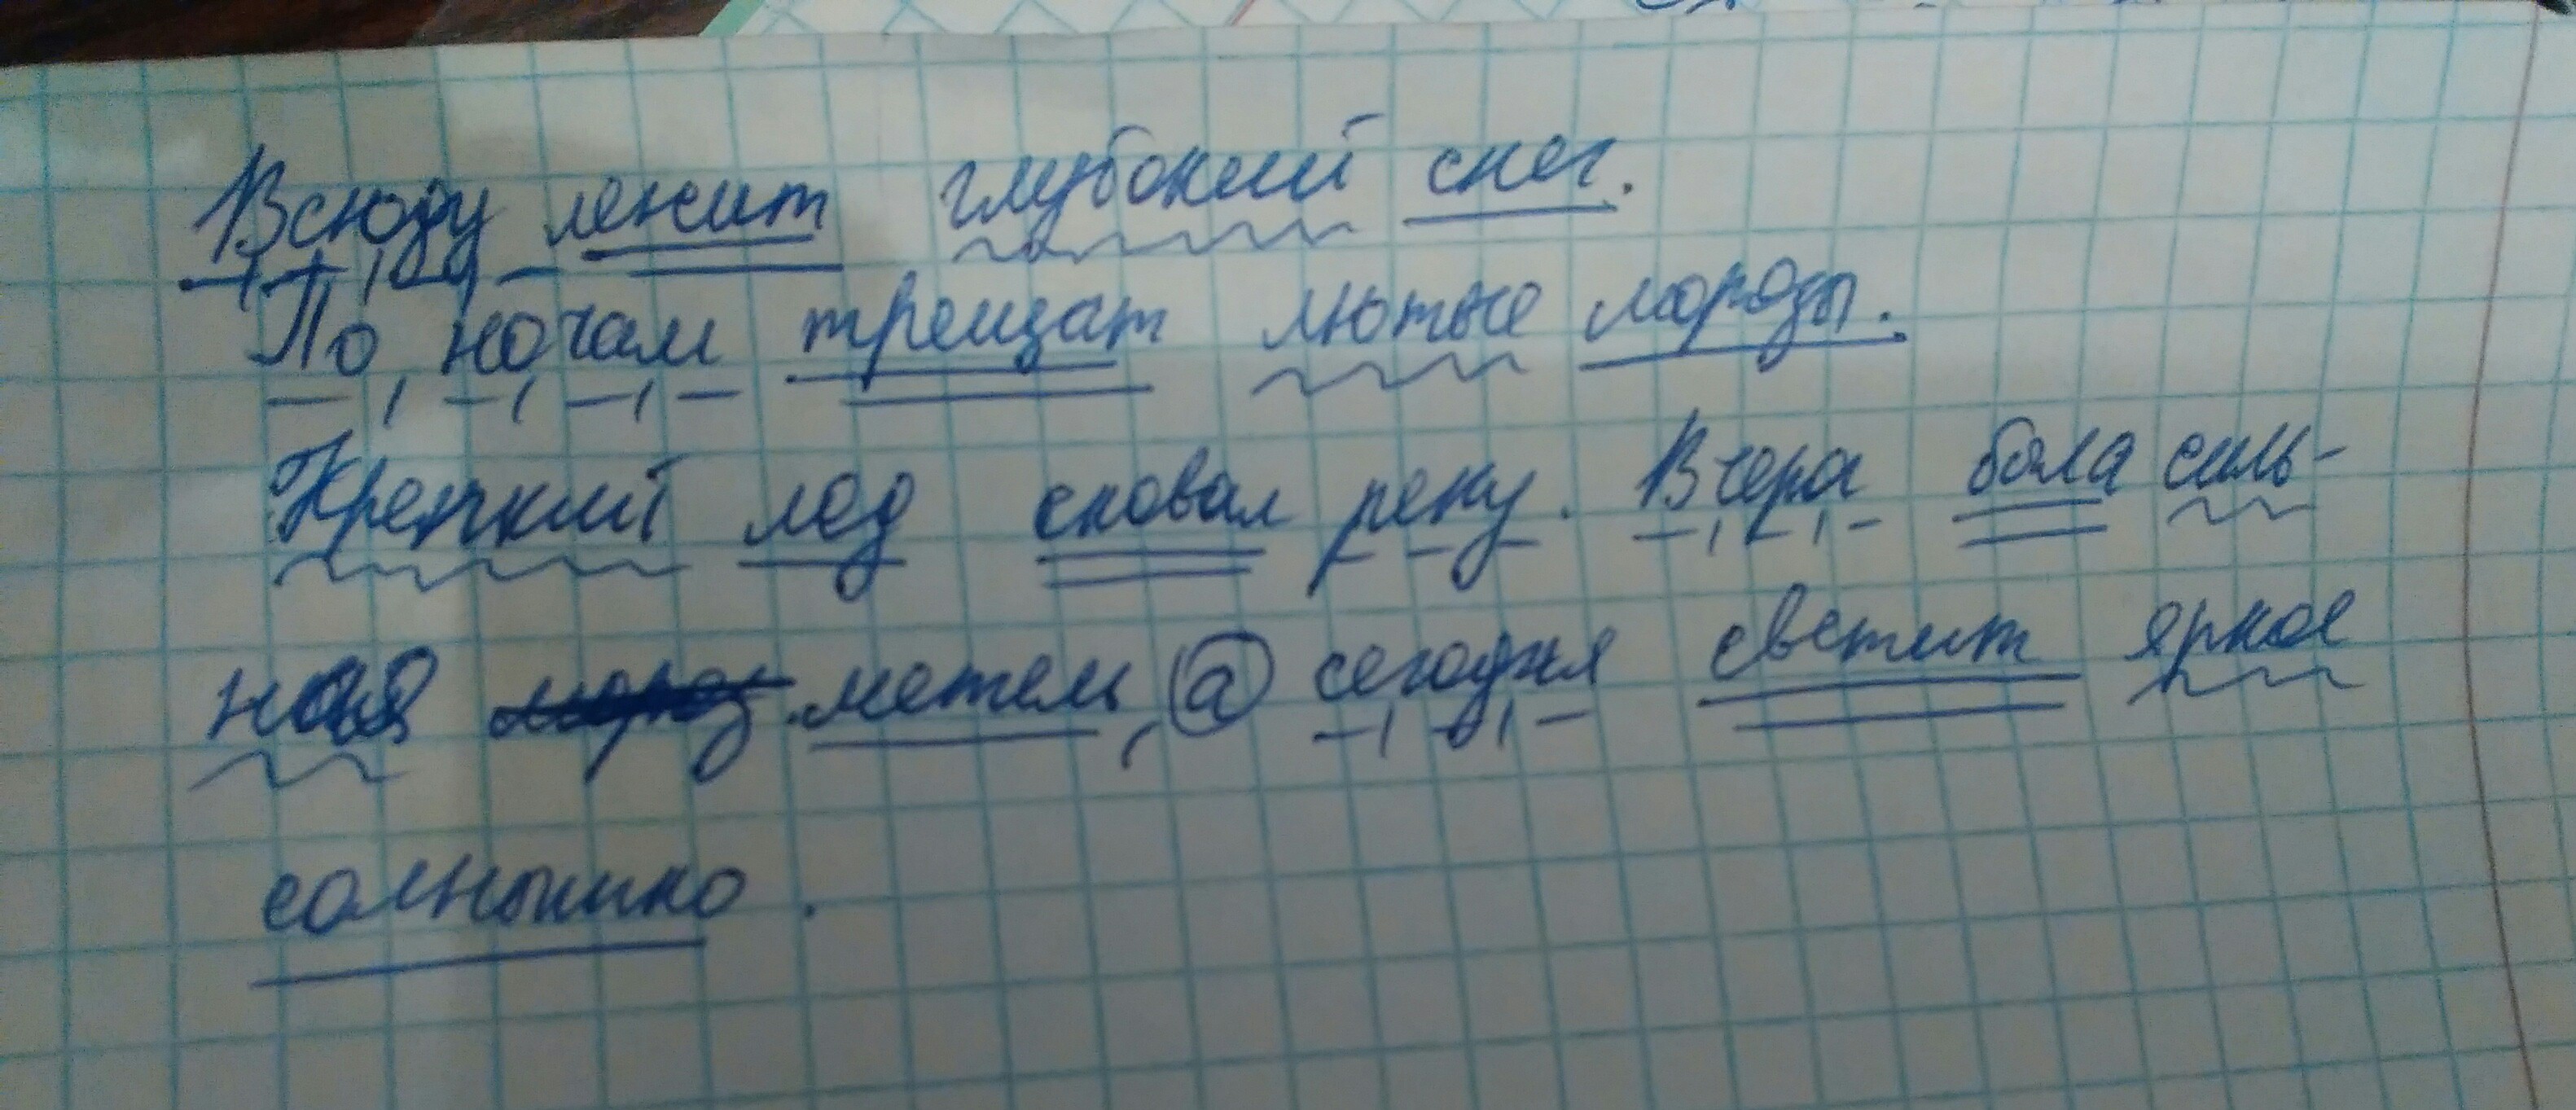 Всюду лежит глубокий снег.
По ночам трещат лютые морозы.
Крепкий лёд сковал реку. Вчера была силь-
ная метель, а сегодня светит яркое
солнышко.